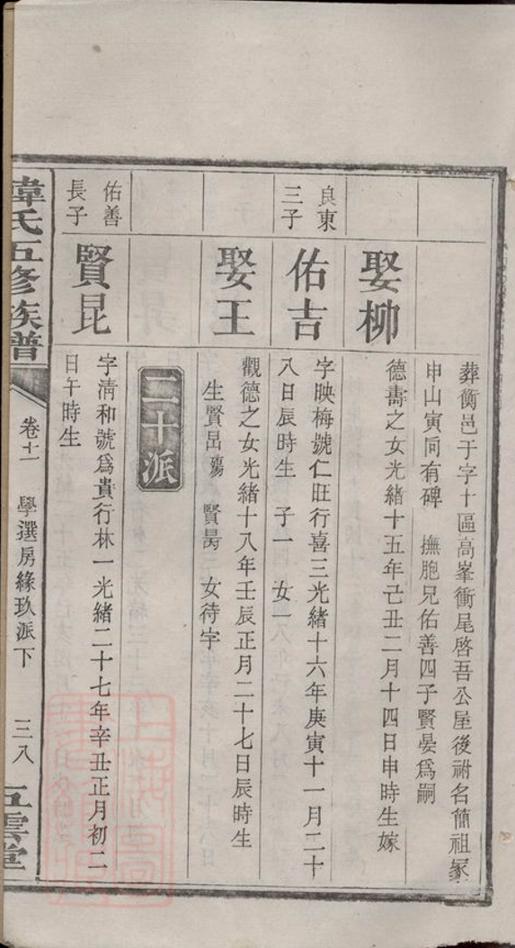 葬衡邑于字十區高峯衝尾啓吾公屋後祔名簡祖冢
申山寅向有碑　撫胞兄佑善四子賢晏爲嗣
娶柳
德壽之女光緒十五年己丑二月十四日申時生嫁
良東三子
佑吉
字映梅號仁旺行喜三光緒十六年庚寅十一月二十
八日辰時生　子一　女一
娶王
觀德之女光緒十八年壬辰正月二十七日辰時生
生賢昺殤　賢昺　女待字
二十派
佑善長子
賢昆
字清和號爲貴行林一光緒二十七年辛丑正月初二
日午時生
韋氏五修族譜
卷十一　學選房緣玖派下　三八　五雲堂